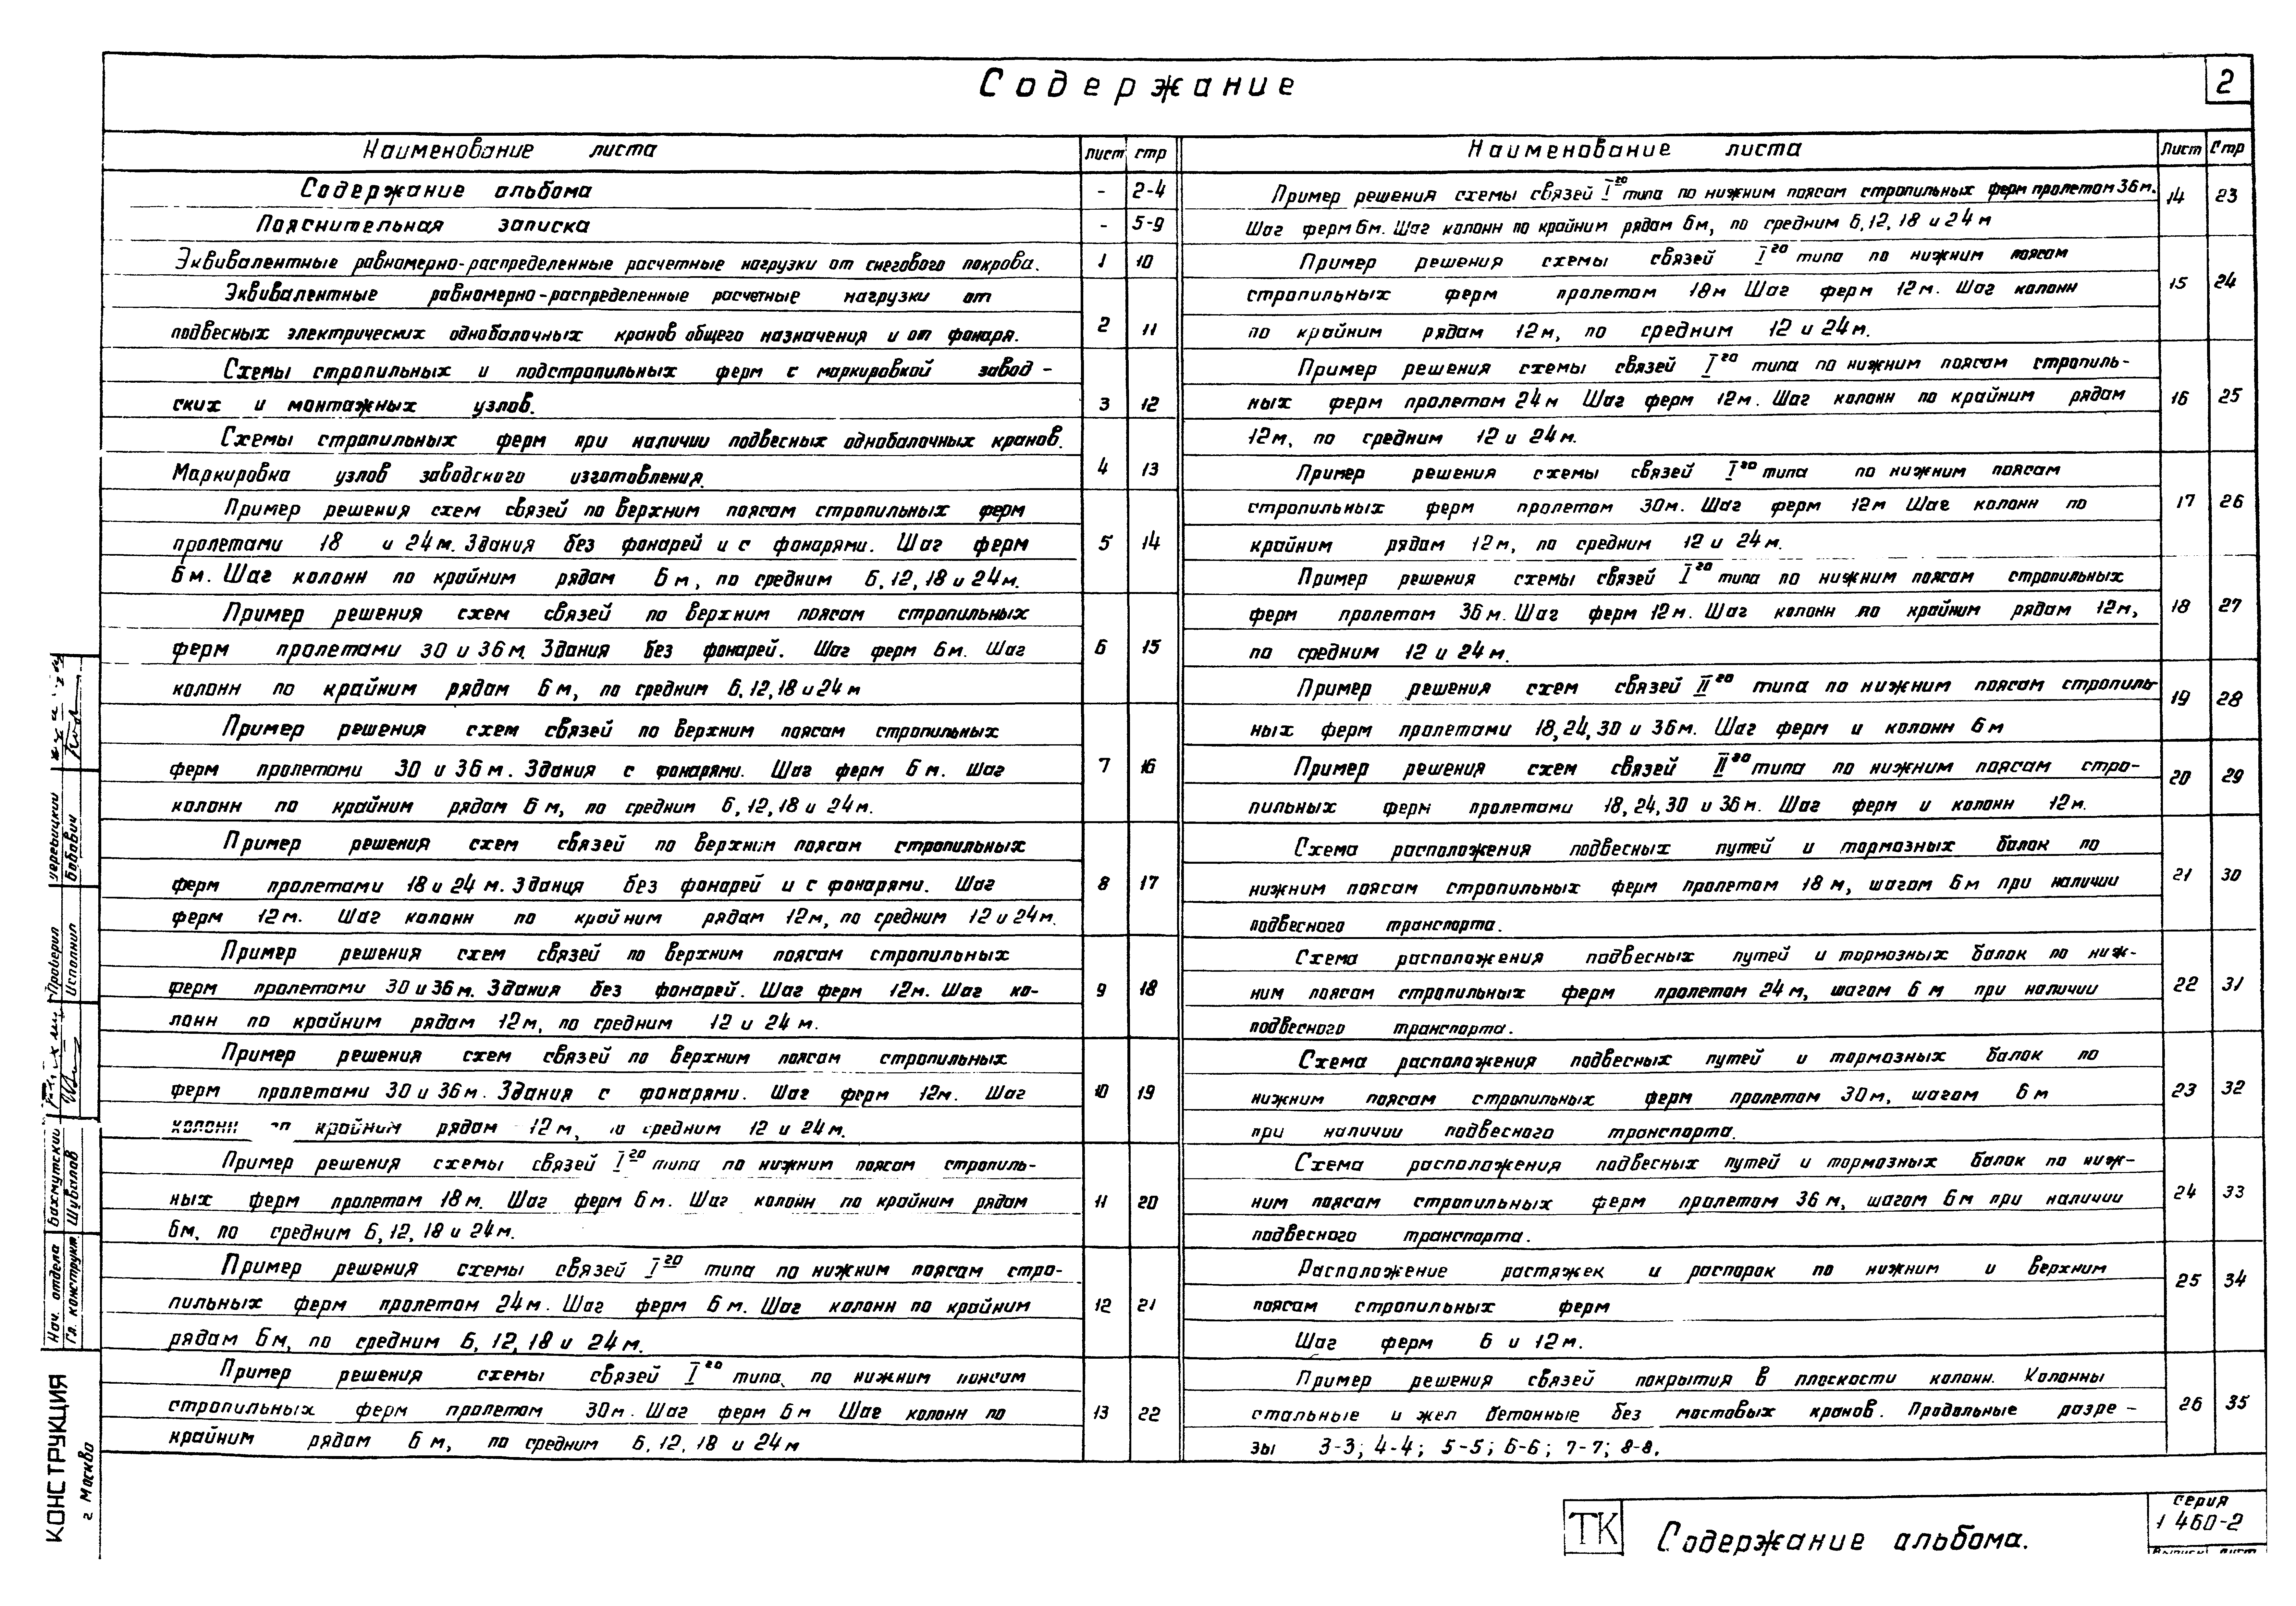 Содержание
2
Наименование листа лист стр
Содержание альбома - 2-4
Пояснительная записка - 5-9
Эквивалентные равномерно-распределенные расчетные нагрузки от снегового покрова. 1 10
Эквивалентные равномерно-распределенные расчетные нагрузки от
подвесных электрических однобалочных кранов общего назначения и от фонаря. 2 11
Схемы стропильных и подстропильных ферм с маркировкой завод-
ских и монтажных узлов. 3 12
Схемы стропильных ферм при наличии подвесных однобалочных кранов.
Маркировка узлов заводского изготовления. 4 13
Пример решения схем связей по верхним поясам стропильных ферм
пролетами 18 и 24 м. Здания без фонарей и с фонарями. Шаг ферм 5 14
6 м. Шаг колонн по крайним рядам 6 м, по средним 6, 12, 18 и 24 м.
Пример решения схем связей по верхним поясам стропильных
ферм пролетами 30 и 36 м. Здания без фонарей. Шаг ферм 6 м. Шаг 6 15
колонн по крайним рядам 6 м, по средним 6, 12, 18 и 24 м
Пример решения схем связей по верхним поясам стропильных
ферм пролетами 30 и 36 м. Здания с фонарями. Шаг ферм 6 м. Шаг 7 16
колонн по крайним рядам 6 м, по средним 6, 12, 18 и 24 м.
Пример решения схем связей по верхним поясам стропильных
ферм пролетами 18 и 24 м. Здания без фонарей и с фонарями. Шаг 8 17
ферм 12 м. Шаг колонн по крайним рядам 12 м, по средним 12 и 24 м.
Пример решения схем связей по верхним поясам стропильных
ферм пролетами 30 и 36 м. Здания без фонарей. Шаг ферм 12 м. Шаг ко- 9 18
лонн по крайним рядам 12 м, по средним 12 и 24 м.
Пример решения схем связей по верхним поясам стропильных
ферм пролетами 30 и 36 м. Здания с фонарями. Шаг ферм 12 м. Шаг 10 19
колонн по крайним рядам 12 м, по средним 12 и 24 м.
Пример решения схемы связей I го типа по нижним поясам стропиль-
ных ферм пролетом 18 м. Шаг ферм 6 м. Шаг колонн по крайним рядам 11 20
6 м, по средним 6, 12, 18 и 24 м.
Пример решения схемы связей I го типа по нижним поясам стро-
пильных ферм пролетом 24 м. Шаг ферм 6 м. Шаг колонн по крайним 12 21
рядам 6 м, по средним 6, 12, 18 и 24 м.
Пример решения схемы связей I го типа по нижним поясам
стропильных ферм пролетом 30 м. Шаг ферм 6 м Шаг колонн по 13 22
крайним рядам 6 м, по средним 6, 12, 18 и 24 м
Наименование листа Лист Стр
Пример решения схемы связей I го типа по нижним поясам стропильных ферм пролетом 36 м. 14 23
Шаг ферм 6 м. Шаг колонн по крайним рядам 6 м, по средним 6, 12, 18 и 24 м
Пример решения схемы связей I го типа по нижним поясам
стропильных ферм пролетом 18 м Шаг ферм 12 м. Шаг колонн 15 24
по крайним рядам 12 м, по средним 12 и 24 м.
Пример решения схемы связей I го типа по нижним поясам стропиль-
ных ферм пролетом 24 м Шаг ферм 12 м. Шаг колонн по крайним рядам 16 25
12 м, по средним 12 и 24 м.
Пример решения схемы связей I го типа по нижним поясам
стропильных ферм пролетом 30 м. Шаг ферм 12 м Шаг колонн по 17 26
крайним рядам 12 м, по средним 12 и 24 м.
Пример решения схемы связей I го типа по нижним поясам стропильных
ферм пролетом 36 м. Шаг ферм 12 м. Шаг колонн по крайним рядам 12 м, 18 27
по средним 12 и 24 м.
Пример решения схем связей II го типа по нижним поясам стропиль 19 28
ных ферм пролетами 18, 24, 30 и 36 м. Шаг ферм и колонн 6 м
Пример решения схем связей II го типа по нижним поясам стро- 20 29
пильных ферм пролетами 18, 24, 30 и 36 м. Шаг ферм и колонн 12 м.
Схема расположения подвесных путей и тормозных балок по
нижним поясам стропильных ферм пролетом 18 м, шагом 6 м при наличии 21 30
подвесного транспорта.
Схема расположения подвесных путей и тормозных балок по ниж-
ним поясам стропильных ферм пролетом 24 м, шагом 6 м при наличии 22 31
подвесного транспорта.
Схема расположения подвесных путей и тормозных балок по
нижним поясам стропильных ферм пролетом 30 м, шагом 6 м 23 32
при наличии подвесного транспорта.
Схема расположения подвесных путей и тормозных балок по ниж-
ним поясам стропильных ферм пролетом 36 м, шагом 6 м при наличии 24 33
подвесного транспорта.
Расположение растяжек и распорок по нижним и верхним 25 34
поясам стропильных ферм
Шаг ферм 6 и 12 м.
Пример решения связей покрытия в плоскости колонн. Колонны
стальные и жел бетонные без мостовых кранов. Продольные разре- 26 35
зы 3-3; 4-4; 5-5; 6-6; 7-7; 8-8.
Нач. отдела Бахмутский
Гл. конструкт. Шувалов
Проверил
Исполнил Бабович
КОНСТРУКЦИЯ
г. Москва
ТК
Содержание альбома.
серия
1 460-2
Выпуск лист